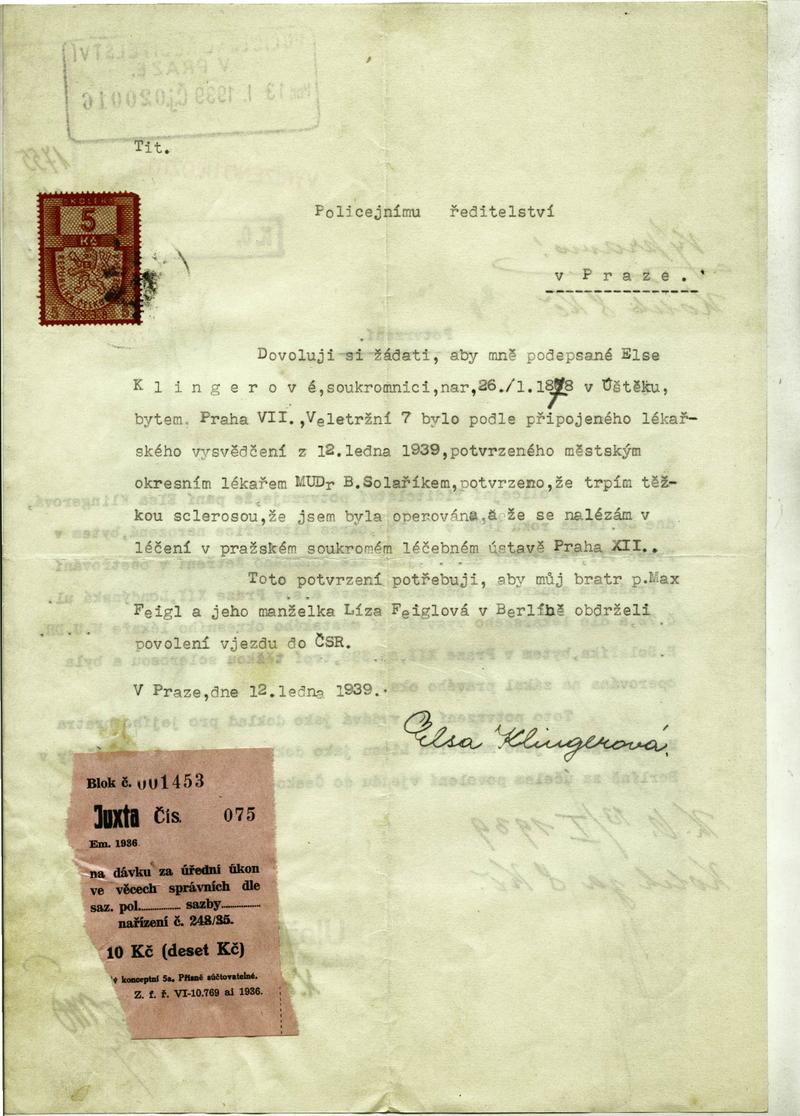 Tit.
KOLEK
5
Kč
Policejnímu ředitelství
v Praze.
Dovoluji si žádati, aby mně podepsané Else
Klingerové,soukromnici,nar,26./1.1878 v Úštěku,
bytem. Praha VII.,Veletržní 7 bylo podle připojeného lékař-
ského vysvědčení z 12.ledna 1939,potvrzeného městským
okresním lékařem MUDr B.Solaříkem,potvrzeno,že trpím těž-
kou sclerosou,že jsem byla operována,a že se nalézám v
léčení v pražském soukromém léčebném ústavě Praha XII..
Toto potvrzení potřebuji, aby můj bratr p.Max
Feigl a jeho manželka Líza Feiglová v Berlíně obdrželi
povolení vjezdu do ČSR.
V Praze,dne 12.ledna 1939.
Elsa Klingerová.
Blok č. 001453
Juxta Čís. 075
Em. 1936
na dávku za úřední úkon
ve věcech správních dle
saz. pol........... sazby...........
nařízení č. 248/35.
10 Kč (deset Kč)
ý konceptní 5a. Přísně súčtovatelné.
Z. f. ř. VI-10.769 ai 1936.